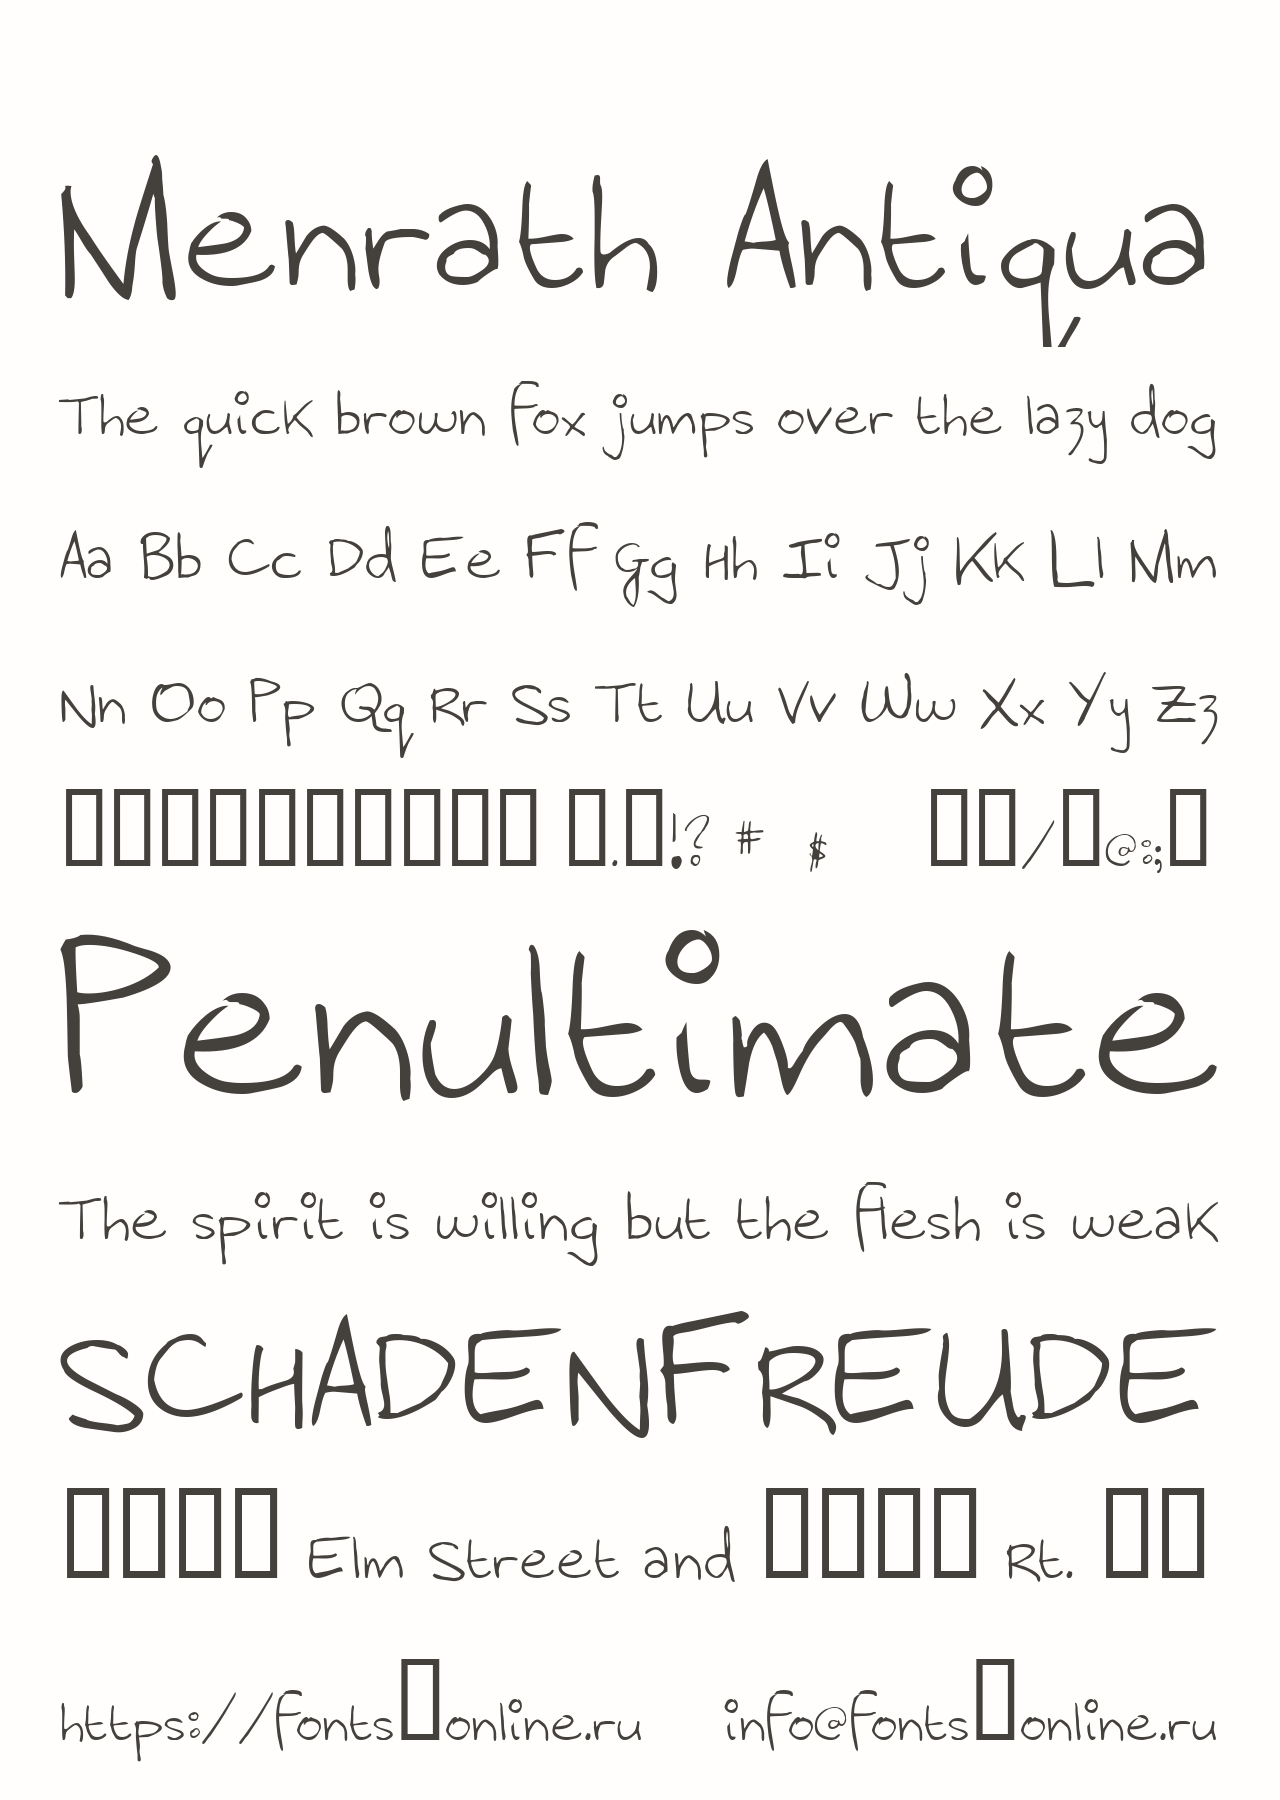 Menrath Antiqua
The quick brown fox jumps over the lazy dog
Aa Bb Cc Dd Ee Ff Gg Hh Ii Jj Kk Ll Mm
Nn Oo Pp Qq Rr Ss Tt Uu Vv Ww Xx Yy Zz
▯▯▯▯▯▯▯▯▯▯ ▯.▯!? # $ ▯▯/▯@:;▯
Penultimate
The spirit is willing but the flesh is weak
SCHADENFREUDE
▯▯▯▯ Elm Street and ▯▯▯▯ Rt. ▯▯
https://fonts▯online.ru info@fonts▯online.ru